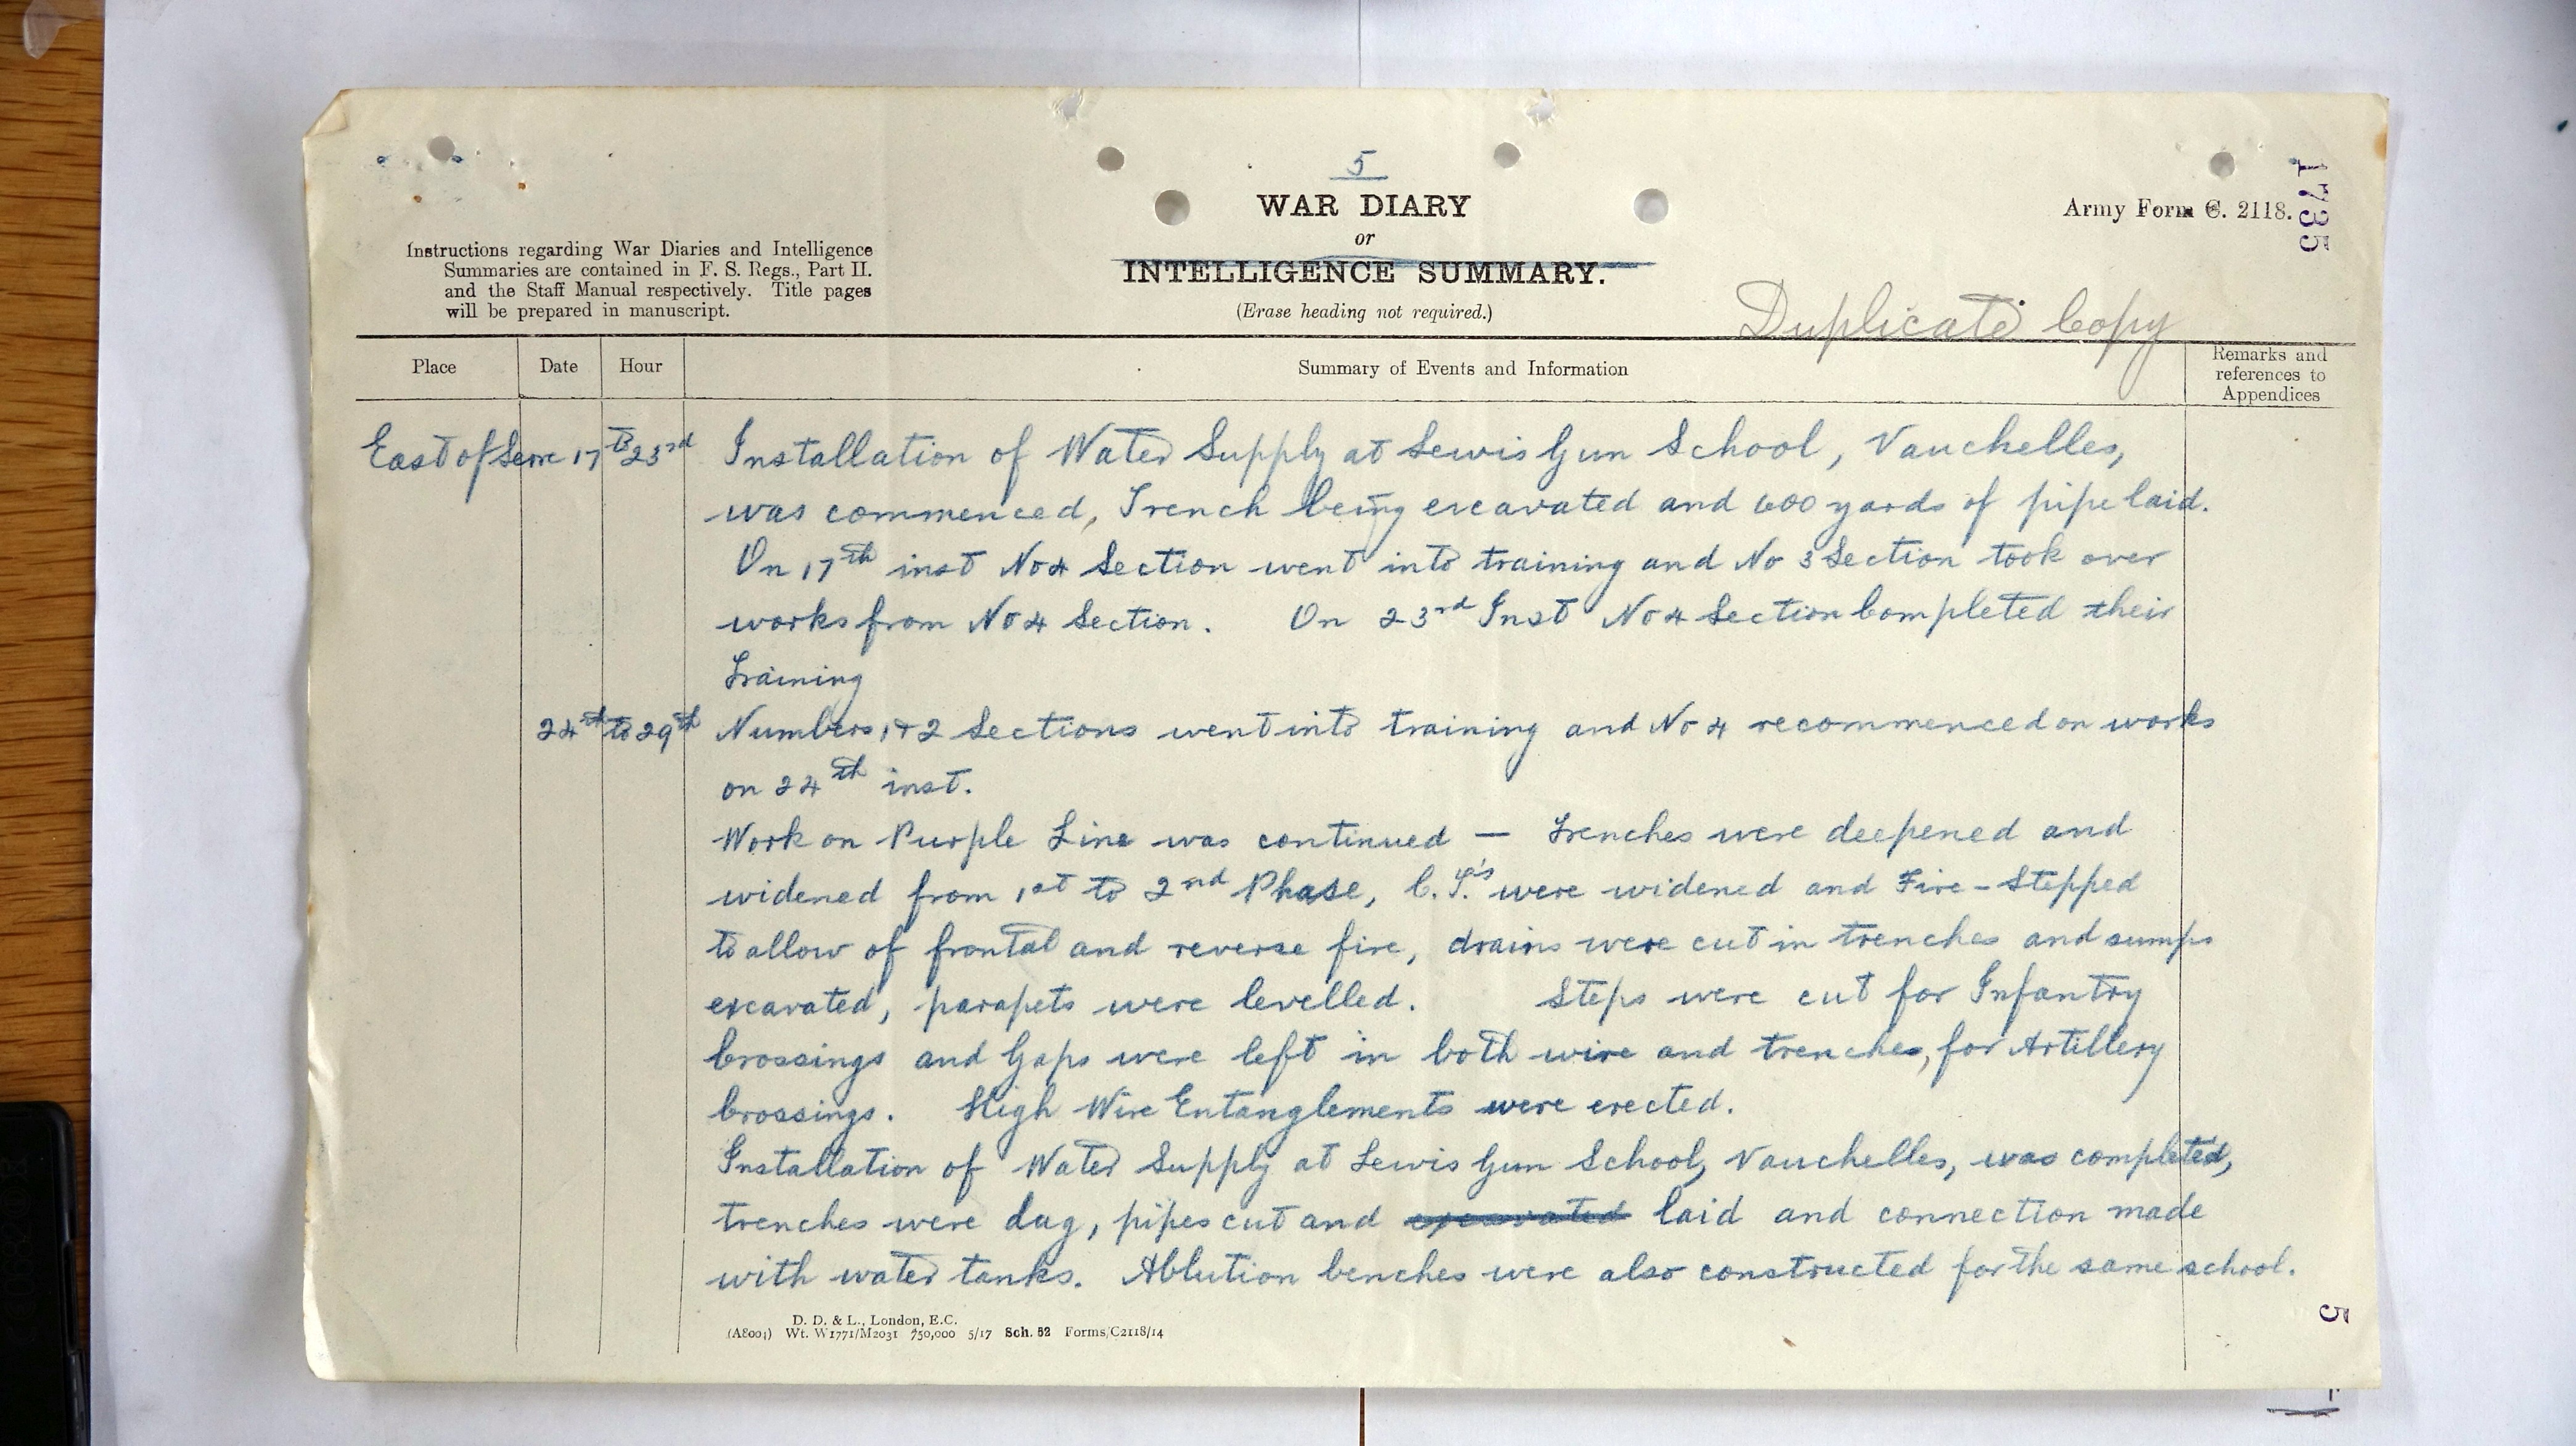 5
WAR DIARY
or
INTELLIGENCE SUMMARY.
(Erase heading not required.)
Army Form C. 2118.
1735
Instructions regarding War Diaries and Intelligence
Summaries are contained in F. S. Regs., Part II.
and the Staff Manual respectively. Title pages
will be prepared in manuscript.
Duplicate Copy
Place Date Hour Summary of Events and Information Remarks and
references to
Appendices
East of Serre 17 to 23rd Installation of Water Supply at Lewis Gun School, Vauchelles,
was commenced, Trench being excavated and 600 yards of pipe laid.
On 17th inst No 4 Section went into training and No 3 Section took over
works from No 4 Section. On 23rd Inst No 4 Section Completed their
Training
24th to 29th Numbers 1 & 2 Sections went into training and No 4 recommenced on works
on 24th inst.
Work on Purple Line was continued — Trenches were deepened and
widened from 1st to 2nd Phase, C.T's were widened and Fire-Stepped
to allow of frontal and reverse fire, drains were cut in trenches and sumps
excavated, parapets were levelled. Steps were cut for Infantry
Crossings and Gaps were left in both wire and trenches, for Artillery
Crossings. High Wire Entanglements were erected.
Installation of Water Supply at Lewis Gun School, Vauchelles, was completed,
trenches were dug, pipes cut and excavated laid and connection made
with water tanks. Ablution benches were also constructed for the same school.
D. D. & L., London, E.C.
(A8004) Wt. W1771/M2031 750,000 5/17 Sch. 52 Forms/C2118/14
5